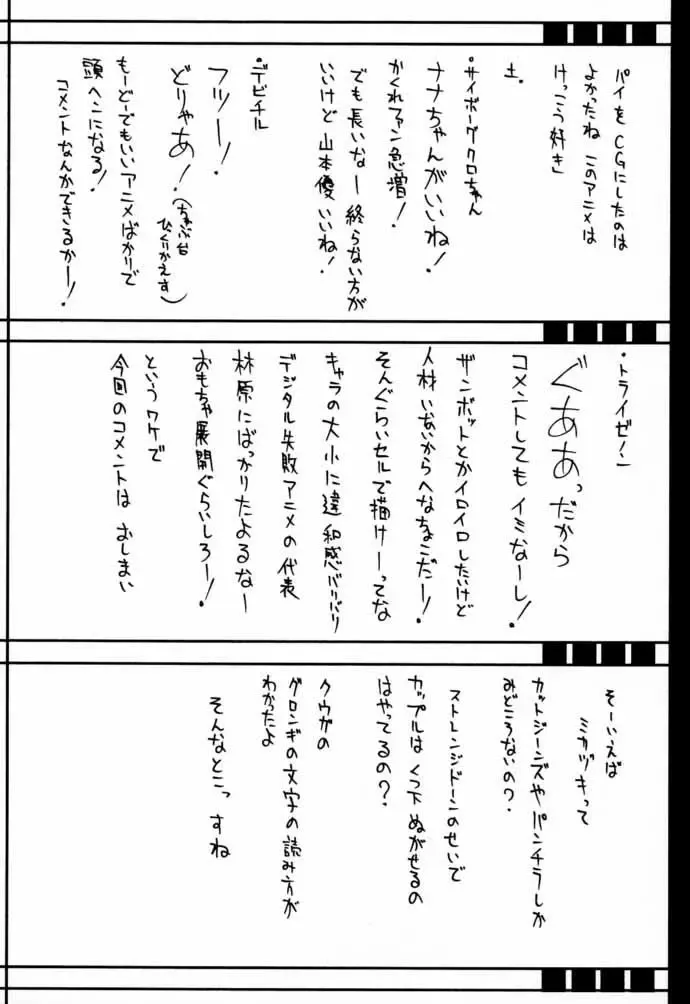 パイをCGにしたのは
よかったね このアニメは
けっこう好き」
土.
・サイボーグクロちゃん
ナナちゃんがいいね!
かくれファン急増!
でも長いなー 終らない方が
いいけど 山本優いいね!
・デビチル
フッー!
どりゃあ!(ちゃぶ台
ひっくりがえす)
もーどーでもいいアニメばかりで
頭ヘンになる!
コメントなんかできるかー!
・トライゼノン
ぐああっだから
コメントしてもイミなーし!
ザンボットとかイロイロしたいけど
人材いないからへなちょこだー!
そんぐらいセルで描けーってな
キャラの大小に違和感バリバリ
デジタル失敗アニメの代表
林原にばっかりたよるなー
おもちゃ展開ぐらいしろー!
というワケで
今回のコメントは おしまい
そーいえば
ミカヅキって
カットジーンズやパンチラしか
みどころないの?
ストレンジドーンのせいで
カップルは くつ下 ぬがせるの
はやってるの?
クウガの
グロンギの文字の読み方が
わかったよ
そんなとこっすね